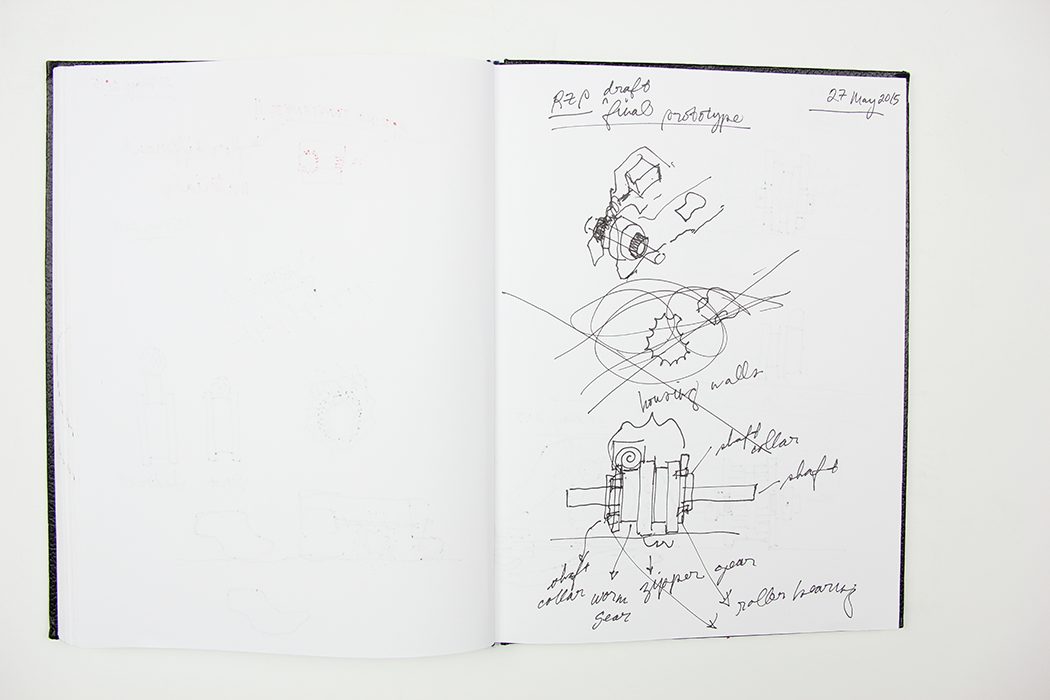 RZP draft 27 May 2015
^ final prototype
housing walls
shaft
collar
shaft
shaft
collar
worm
gear
zipper gear
roller bearing